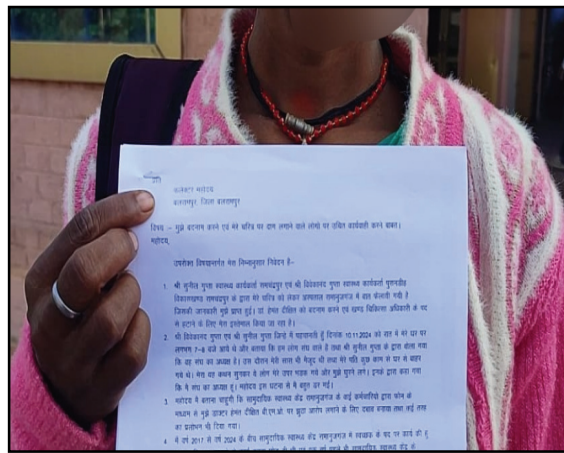 प्रति
कलेक्टर महोदय
बलरामपुर जिला बलरामपुर
विषय :- मुझे बदनाम करने एवं मेरे चरित्र पर दाग लगाने वाले लोगो पर उचित कार्यवाही करने बाबत।
महोदय,
उपरोक्त विषयान्तर्गत मेरा निम्नानुसार निवेदन है:-
1. श्री सुनील गुप्ता स्वास्थ्य कार्यकर्ता रामचंद्रपुर एवं श्री विवेकानंद गुप्ता स्वास्थ्य कार्यकर्ता
विकासखण्ड रामचंद्रपुर के द्वारा मेरे चरित्र को लेकर अस्पताल रामानुजगंज में बात फैलायी गयी है
जिसकी जानकारी मुझे प्राप्त हुई। डा. हेमंत दीक्षित को बदनाम करने एवं खण्ड चिकित्सा अधिकारी के पद
से हटाने के लिए मेरा इस्तेमाल किया जा रहा है।
2. श्री विवेकानंद गुप्ता एवं श्री सुनील गुप्ता जिन्हे मैं पहचानती हूँ दिनांक 10.11.2024 को रात मे मेरे घर पर
लगभग 7-8 बजे आये थे और बताया कि हम लोग संघ वाले है तथा श्री सुनील गुप्ता के द्वारा बोला गया
कि वह संघ का अध्यक्ष है। उस दौरान मेरी सास भी मौजूद थी तथा मेरे पति कुछ काम से घर से बाहर
गये थे। मेरा यह कथन सुनकर वे लोग मेरे उपर भड़क गये और मुझे घुरने लगे। इनके द्वारा कहा गया
कि मैं संघ का अध्यक्ष हूं। महोदय इस घटना से मैं बहुत डर गई।
3. महोदय मैं बताना चाहूंगी कि सामुदायिक स्वास्थ्य केंद्र रामानुजगंज के कई कर्मचारियो द्वारा फोन के
माध्यम से मुझे डाक्टर हेमंत दीक्षित बी.एम.ओ. पर झूठा आरोप लगाने के लिए दबाव बनाया तथा कई तरह
का प्रलोभन भी दिया गया।
4. मैं वर्ष 2017 से वर्ष 2024 के बीच सामुदायिक स्वास्थ्य केंद्र रामानुजगंज में स्वच्छक के पद पर कार्य की हूं